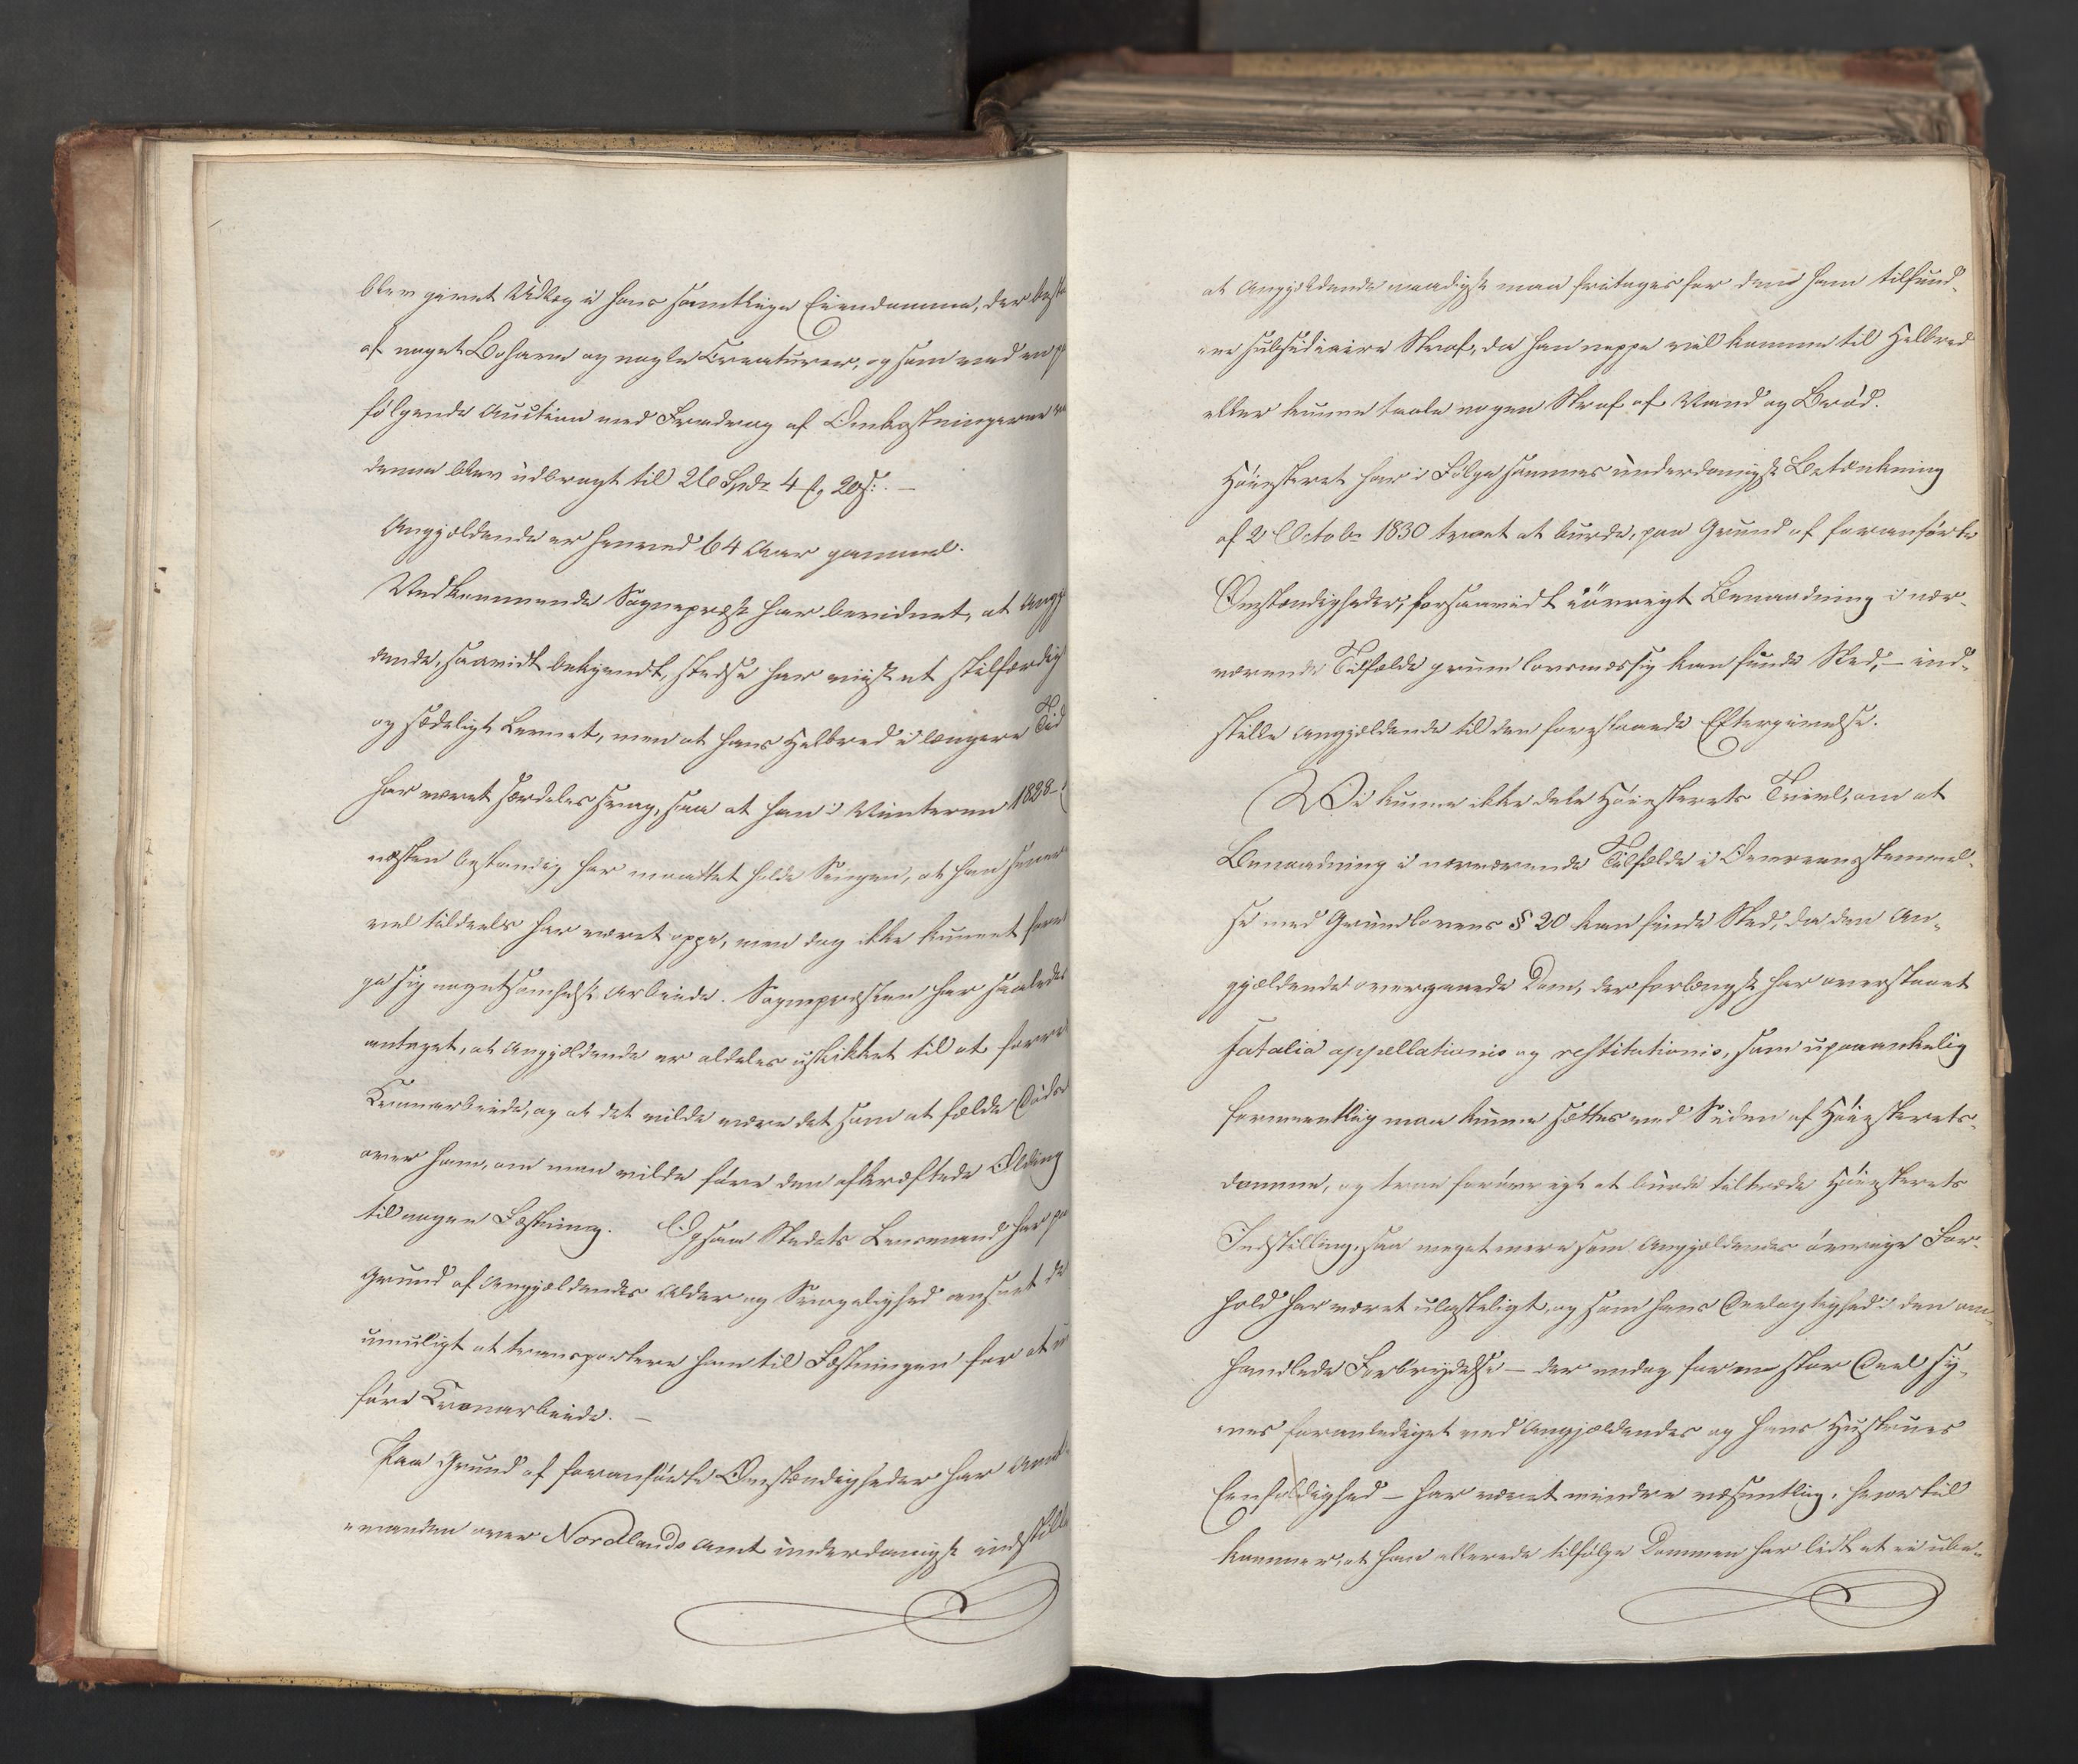 blev givet Udlæg i hans samtlige Eiendomme, der best
af noget Bohave og nogle Creaturer, og som ved en p
følgende Auction med Fradrag af Omkostningerne
denne blev udbragt til 26 Spdr 4 ß.
Angjældende er henved 64 Aar gammel.
Vedkommende Sognepræst har bevidnet, at Angj
dende, saavidt bekjendt, stedse har viist et skikkeligt
og sædeligt Levnet, men at hans Helbred i længere Tid
har været særdeles svag, saa at han i Vinteren 1828-
næsten bestandig har maattet holde Sengen, at han senere
vel tildeels har været oppe, men dog ikke kunnet fore
ge sig noget Arbeide. Sognepræsten har saaledes
antaget, at Angjældende er aldeles uskikket til at forre
Tvangsarbeide, og at det vilde være det samme at fælde Døds
over ham, om man vilde føre den afkræftede Olding
til nogen Fæstning. Ogsaa Stedets Lensmand har paa
Grund af Angjældendes Alder og Svagelighed anseet de
umuligt at transportere ham til Fæstningen for at
føre Tvangsarbeide. –
Paa Grund af foranførte Omstændigheder har Amt-
manden over Nordlands Amt underdanigst indstille
at Angjældende naadigst maa fritages for den ham tilfund-
ne subsidiaire Straf, da han neppe vil komme til Helbred
eller kunne taale nogen Straf af Vand og Brød.
Høiesteret har i Følge sammes underdanigst Betænkning
af 2 Octobr 1830 troet at burde, paa Grund af foranførte
Omstændigheder, forsaavidt iøvrigt Benaadning i nær-
værende Tilfælde grundlovsmæssig kan finde Sted, – ind-
stille Angjældende til den forestaaende Eftergivelse.
Vi kunne ikke dele Høiesterets Tvivl, om at
Benaadning i nærværende Tilfælde i Overeensstemmel-
se med Grundlovens § 20 kan finde Sted, da den An-
gjældende overgaaede Dom, der forlængst har overstaaet
fatalia appellationis og restitutionis, som upaaankelig
formeentlig maa kunne sættes ved Siden af Høiesterets-
domme, og troe forøvrigt at burde tiltræde Høiesterets
Indstilling, saa meget mere som Angjældendes øvrige For-
hold har været ulasteligt, og som hans Deelagtighed i den om-
handlede Forbrydelse – der endog for en stor Deel sy-
nes foranlediget ved Angjældendes og hans Hustrues
Eenfoldighed – har været mindre væsentlig, hvortil
kommer, at han allerede tilfølge Dommen har lidt et ei ube-